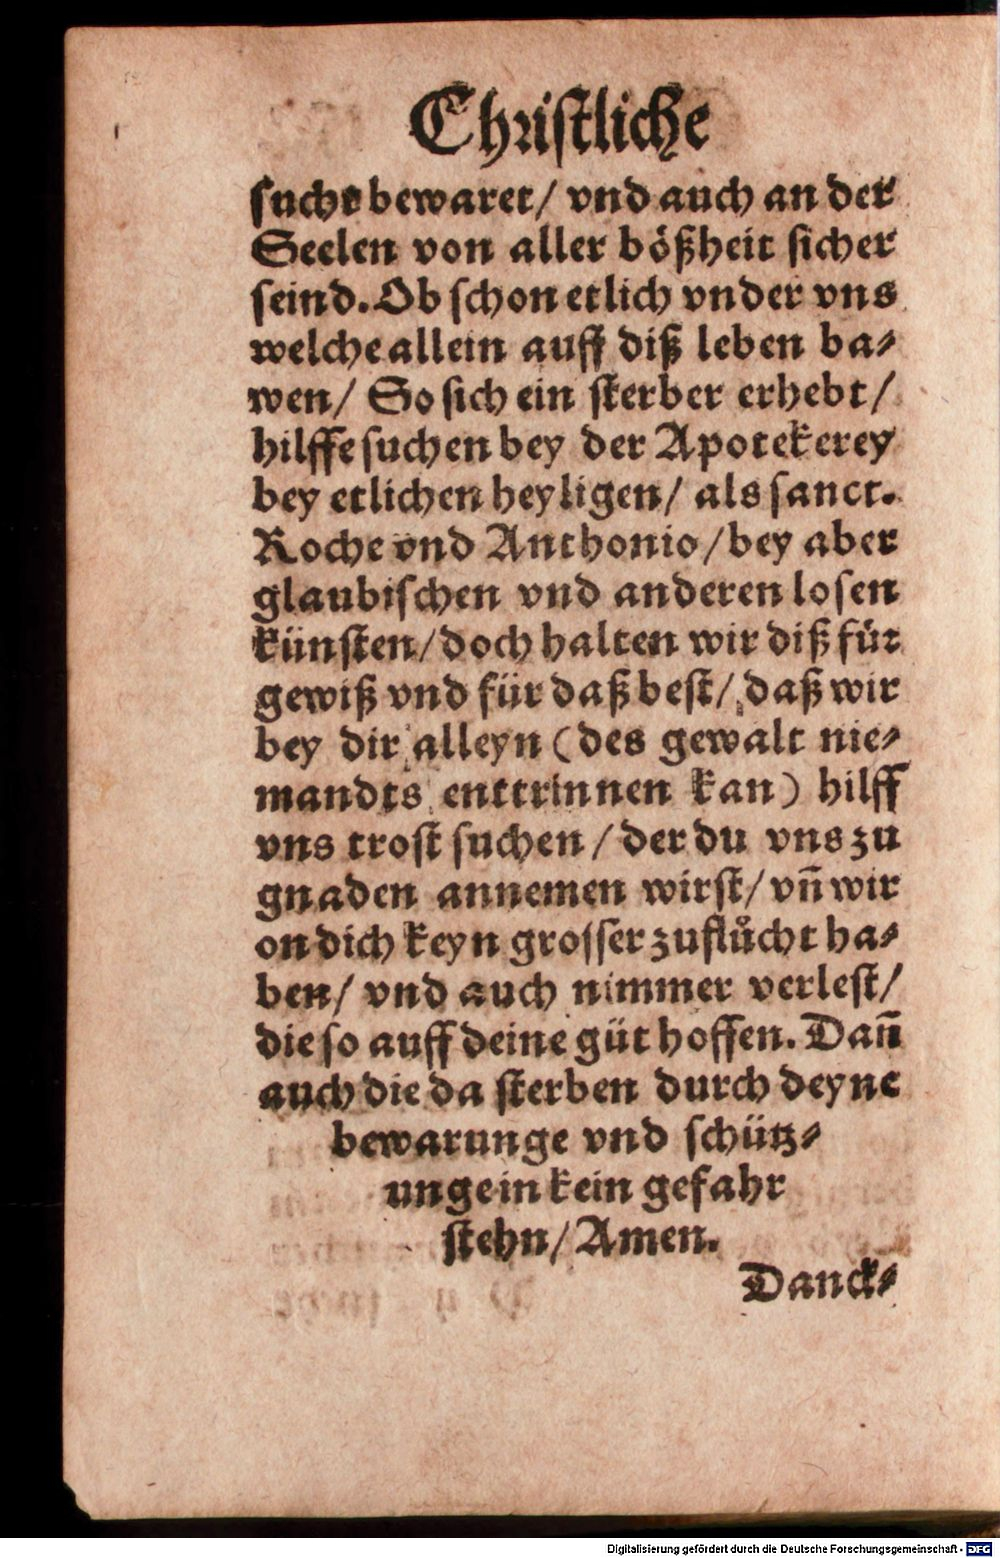 Christliche
sucht bewaret/ vnd auch an der
Seelen von aller bößheit sicher
seind. Ob schon etlich vnder vns
welche allein auff diß leben ba⸗
wen/ So sich ein sterber erhebt/
hilffe suchen bey der Apotekerey
bey etlichen heyligen/ als sanct.
Roche vnd Anthonio/ bey aber
glaubischen vnd anderen losen
künsten/ doch halten wir diß für
gewiß vnd für daß best/ daß wir
bey dir alleyn (des gewalt nie⸗
mandts enttrinnen kan) hilff
vns trost suchen/ der du vns zu
gnaden annemen wirst/ vn̄ wir
on dich keyn grosser zuflůcht ha⸗
ben/ vnd auch nimmer verlest/
die so auff deine güt hoffen. Dan̄
auch die da sterben durch deyne
bewarunge vnd schütz⸗
unge in kein gefahr
stehn/ Amen.
Danck⸗
Digitalisierung gefördert durch die Deutsche Forschungsgemeinschaft - DFG